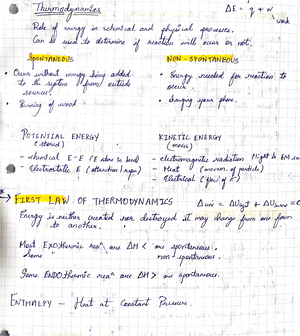 Thermodynamics
ΔE = q + w
work
Role of energy in chemical and physical processes.
Can be used to determine if reaction will occur or not.
SPONTANEOUS
NON-SPONTANEOUS
• Occur without energy being added
to the system (from outside
source).
• Burning of wood
• Energy needed for reaction to
occur
• charging your phone.
POTENTIAL ENERGY
(stored)
KINETIC ENERGY
(moves)
- chemical E - E
- Electrostatic E (attraction /
- electromagnetic radiation
- Heat (movem. of particle)
- Electrical
FIRST LAW OF THERMODYNAMICS
Energy is neither created nor destroyed it may change from one form
to another.
Most EXOthermic reaⁿ are ΔH < are spontaneous.
Some non-spontaneous.
Some ENDOthermic reaⁿ are ΔH > are spontaneous.
ENTHALPY - Heat at Constant Pressure.